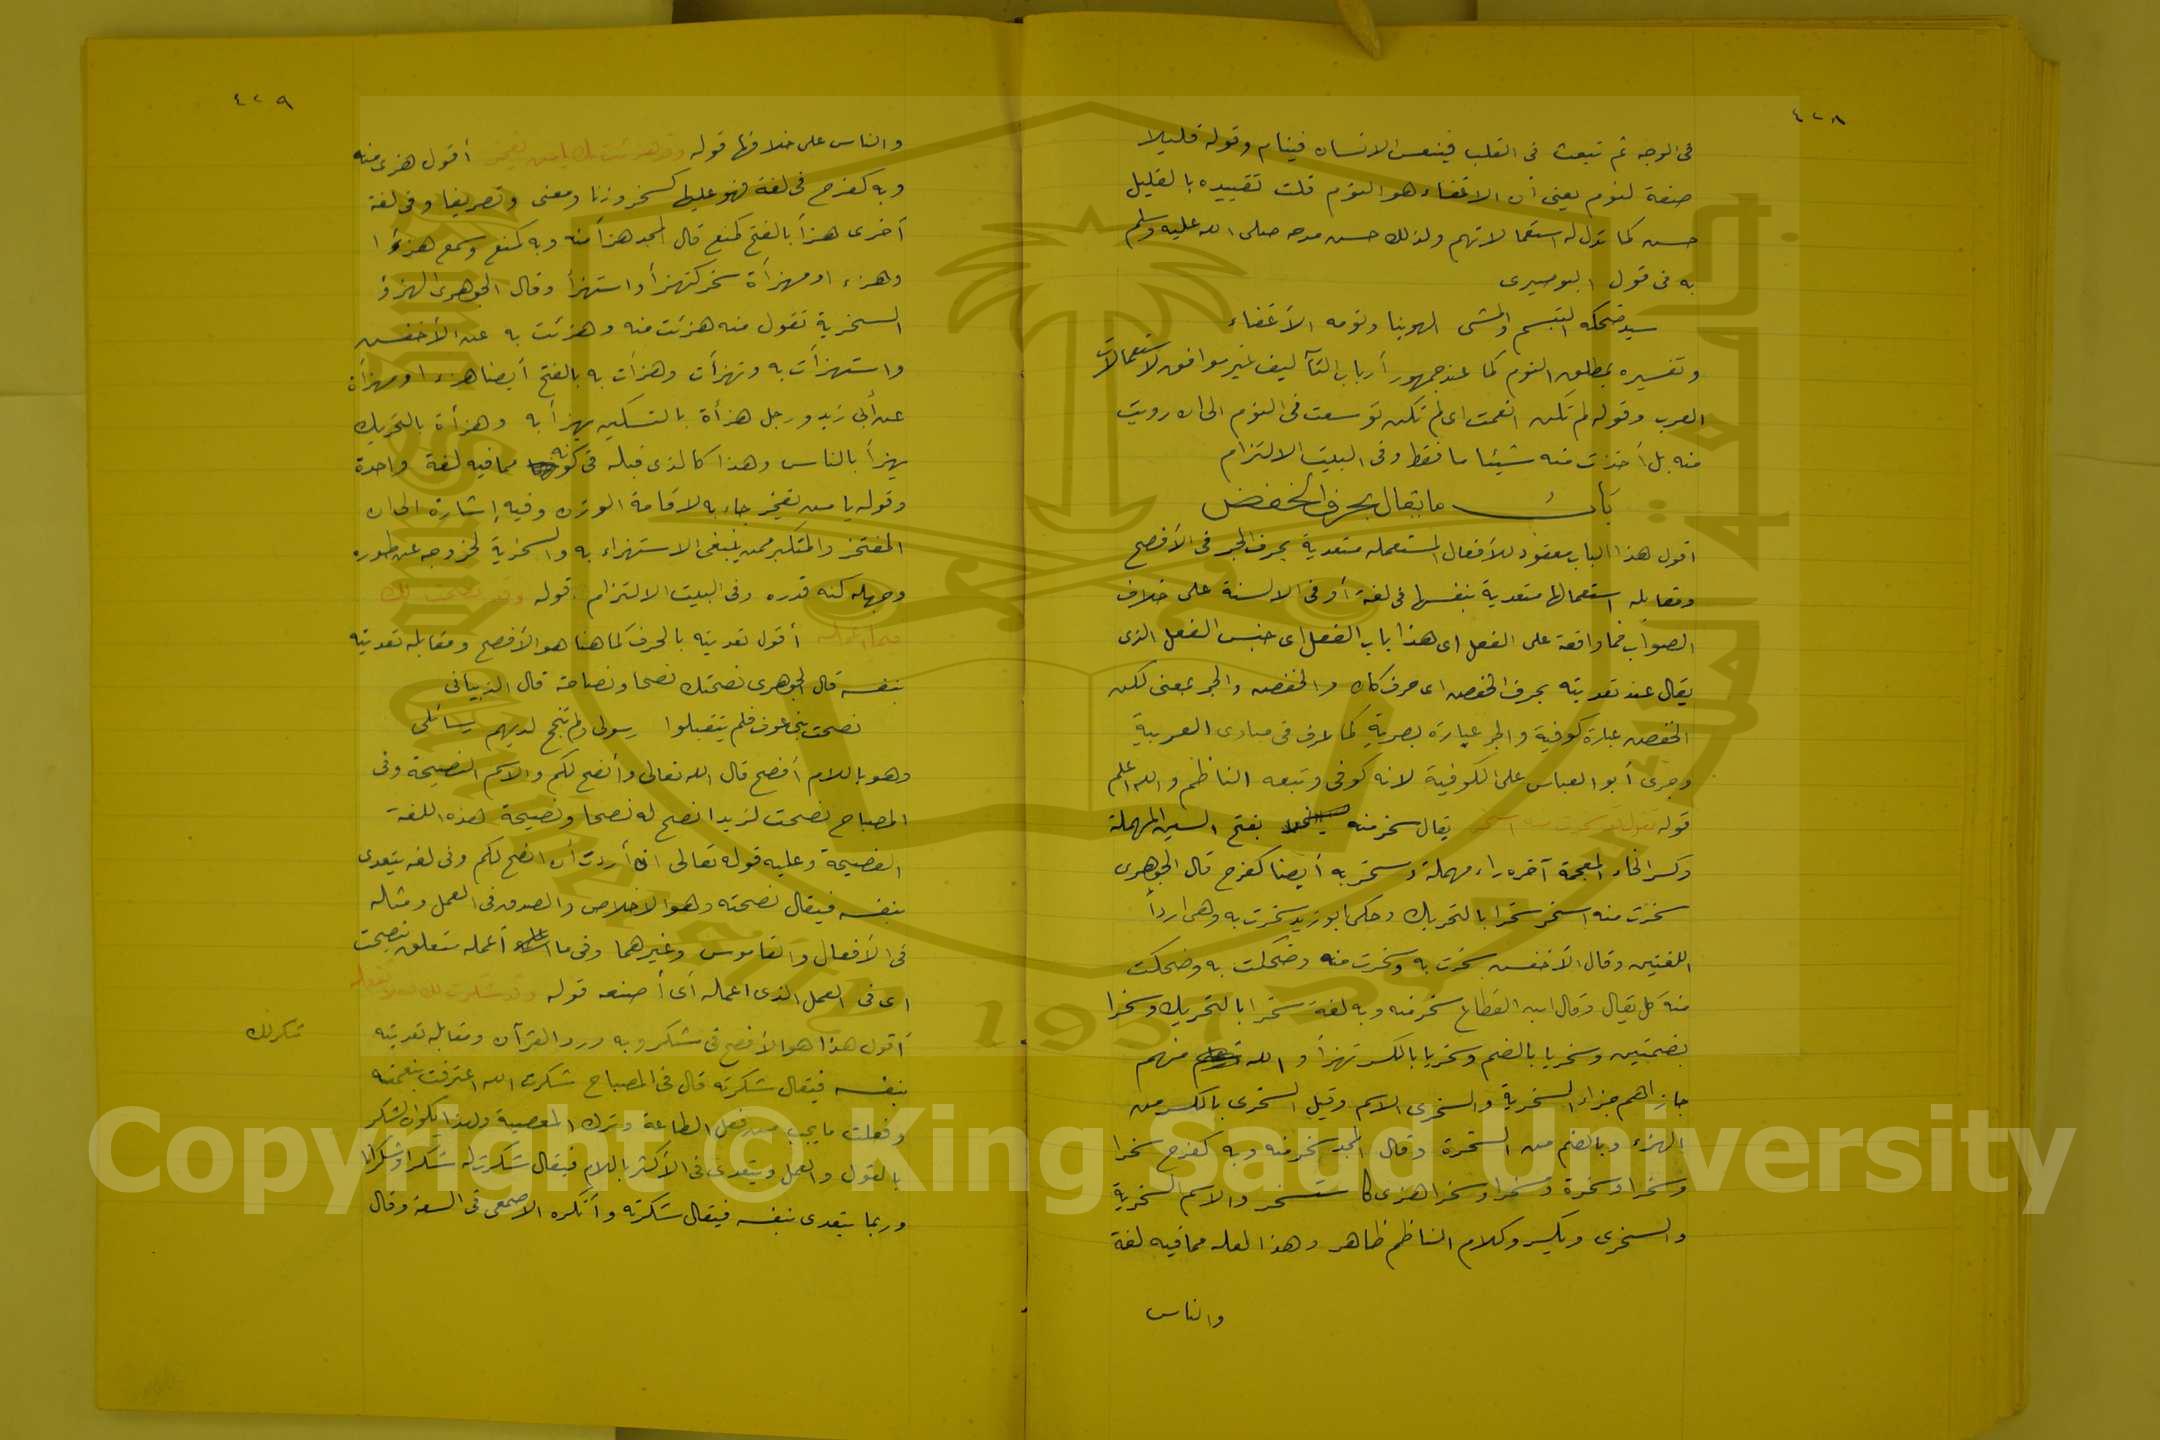 ٤٢٨
فى الوجه ثم تبعث فى القلب فينعس الانسان فينام وقوله قليلا
صفة لنوم يعنى أن الاغفاء هو النوم قلت تقييده بالقليل
حسن كما تدل له استعمالاتهم ولذلك حسن مدحه صلى الله عليه وسلم
به فى قول البوصيرى
سيد ضحكه التبسم والمشى الهوينا ونومه الأغفاء
وتفسيره بمطلق النوم كما عند جمهور أرباب التآليف غير موافق لاستعمالات
العرب وقوله لم تكن انعمت اى لم تكن توسعت فى النوم الى ان رويت
منه بل أخذت منه شيئا ما فقط وفى البيت الالتزام
باب ما يقال بحرف الخفض
اقول هذا الباب معقود للأفعال المستعمله متعدية بحرف الجر فى الأفصح
ومقابله استعمالها متعدية بنفسها فى لغة أو فى الالسنة على خلاف
الصواب فما واقعة على الفعل اى هذا باب الفعل اى جنس الفعل الذى
يقال عند تعديته بحرف الخفض اى حرف كان والخفض والجر بمعنى لكن
الخفض عبارة كوفية والجر عبارة بصرية كما عرف فى مبادى العربية
وجرى أبو العباس على الكوفية لانه كوفى وتبعه الناظم والله اعلم
قوله تقول قد سخرت منه اسخر يقال سخر منه بفتح السين المهملة
وكسر الخاء المعجمة آخره راء مهملة وسخر به أيضا كفرح قال الجوهرى
سخرت منه اسخر سخرا بالتحريك وحكى ابو زيد سخرت به وهى اردأ
اللغتين وقال الأخفش سخرت به وسخرت منه وضحكت به وضحكت
منه كل يقال وقال ابن القطاع سخر منه وبه لغة سخرا بالتحريك وسخرا
بضمتين وسخريا بالضم وسخريا بالكسر تهزأ والله منهم
جازاهم جزاء السخرية والسخرى الاسم وقيل السخرى بالكسر من
الهزء وبالضم من السخرة وقال المجد سخر منه وبه كفرح سخرا
وسخرا وسخرة وسخرا وسخرا هزى كاستسخر والاسم السخرية
والسخرى ويكسر وكلام الناظم ظاهر وهذا لعله مما فيه لغة
والناس
٤٢٩
والناس على خلافها قوله وقد هزئت بك يا من يفخر أقول هزى منه
وبه كفرح فى لغة كسخر وزنا ومعنى وتصريفا وفى لغة
أخرى هزأ بالفتح كمنع قال المجد هزأ منه وبه كمنع وسمع هزؤا
وهزء او مهزأة سخر كتهزأ واستهزأ وقال الجوهرى الهزؤ
السخرية تقول منه هزئت منه وهزئت به عن الأخفش
واستهزأت به وتهزأت وهزأت به بالفتح أيضا هزء او مهزأة
عن أبى زيد ورجل هزأة بالتسكين يهزأ به وهزأة بالتحريك
يهزأ بالناس وهذا كالذى قبله فى كونه مما فيه لغة واحدة
وقوله يا من يفخر جاء به لاقامة الوزن وفيه إشارة الى ان
المفتخر والمتكبر ممن ينبغى الاستهزاء به والسخرية لخروجه عن طوره
وجهله كنه قدره وفى البيت الالتزام قوله وقد نصحت لك
أقول تعديته بالحرف كما هنا هو الأفصح ومقابله تعديته
بنفسه قال الجوهرى نصحتك نصحا ونصاحة قال الذبيانى
نصحت بنى عوف فلم يتقبلوا رسولى ولم تنجح لديهم رسائلى
وهو باللام أفصح قال الله تعالى وأنصح لكم والاسم النصيحة وفى
المصباح نصحت لزيد انصح له نصحا ونصيحة هذه اللغة
الفصيحة وعليه قوله تعالى ان أردت أن انصح لكم وفى لغة يتعدى
بنفسه فيقال نصحته وهو الاخلاص والصدق فى العمل ومثاله
فى الأفعال والقاموس وغيرهما وفى ما أعمله متعلق بنصحت
اى فى العمل الذى اعمله أى أصنعه قوله وقد شكرت لك
أقول هذا هو الأفصح فى شكر وبه ورد القرآن ومقابله تعديته
شكر لك
بنفسه فيقال شكرته قال فى المصباح شكرت الله اعترفت بنعمته
وفعلت ما يجب من فعل الطاعة وترك المعصية ولهذا يكون الشكر
بالقول والعمل ويتعدى فى الأكثر باللام فيقال شكرت له شكرا وشكرانا
وربما يتعدى بنفسه فيقال شكرته وأنكره الاصمعى فى السعة وقال
جامعة الملك سعود
King Saud University
1957
Copyright © King Saud University